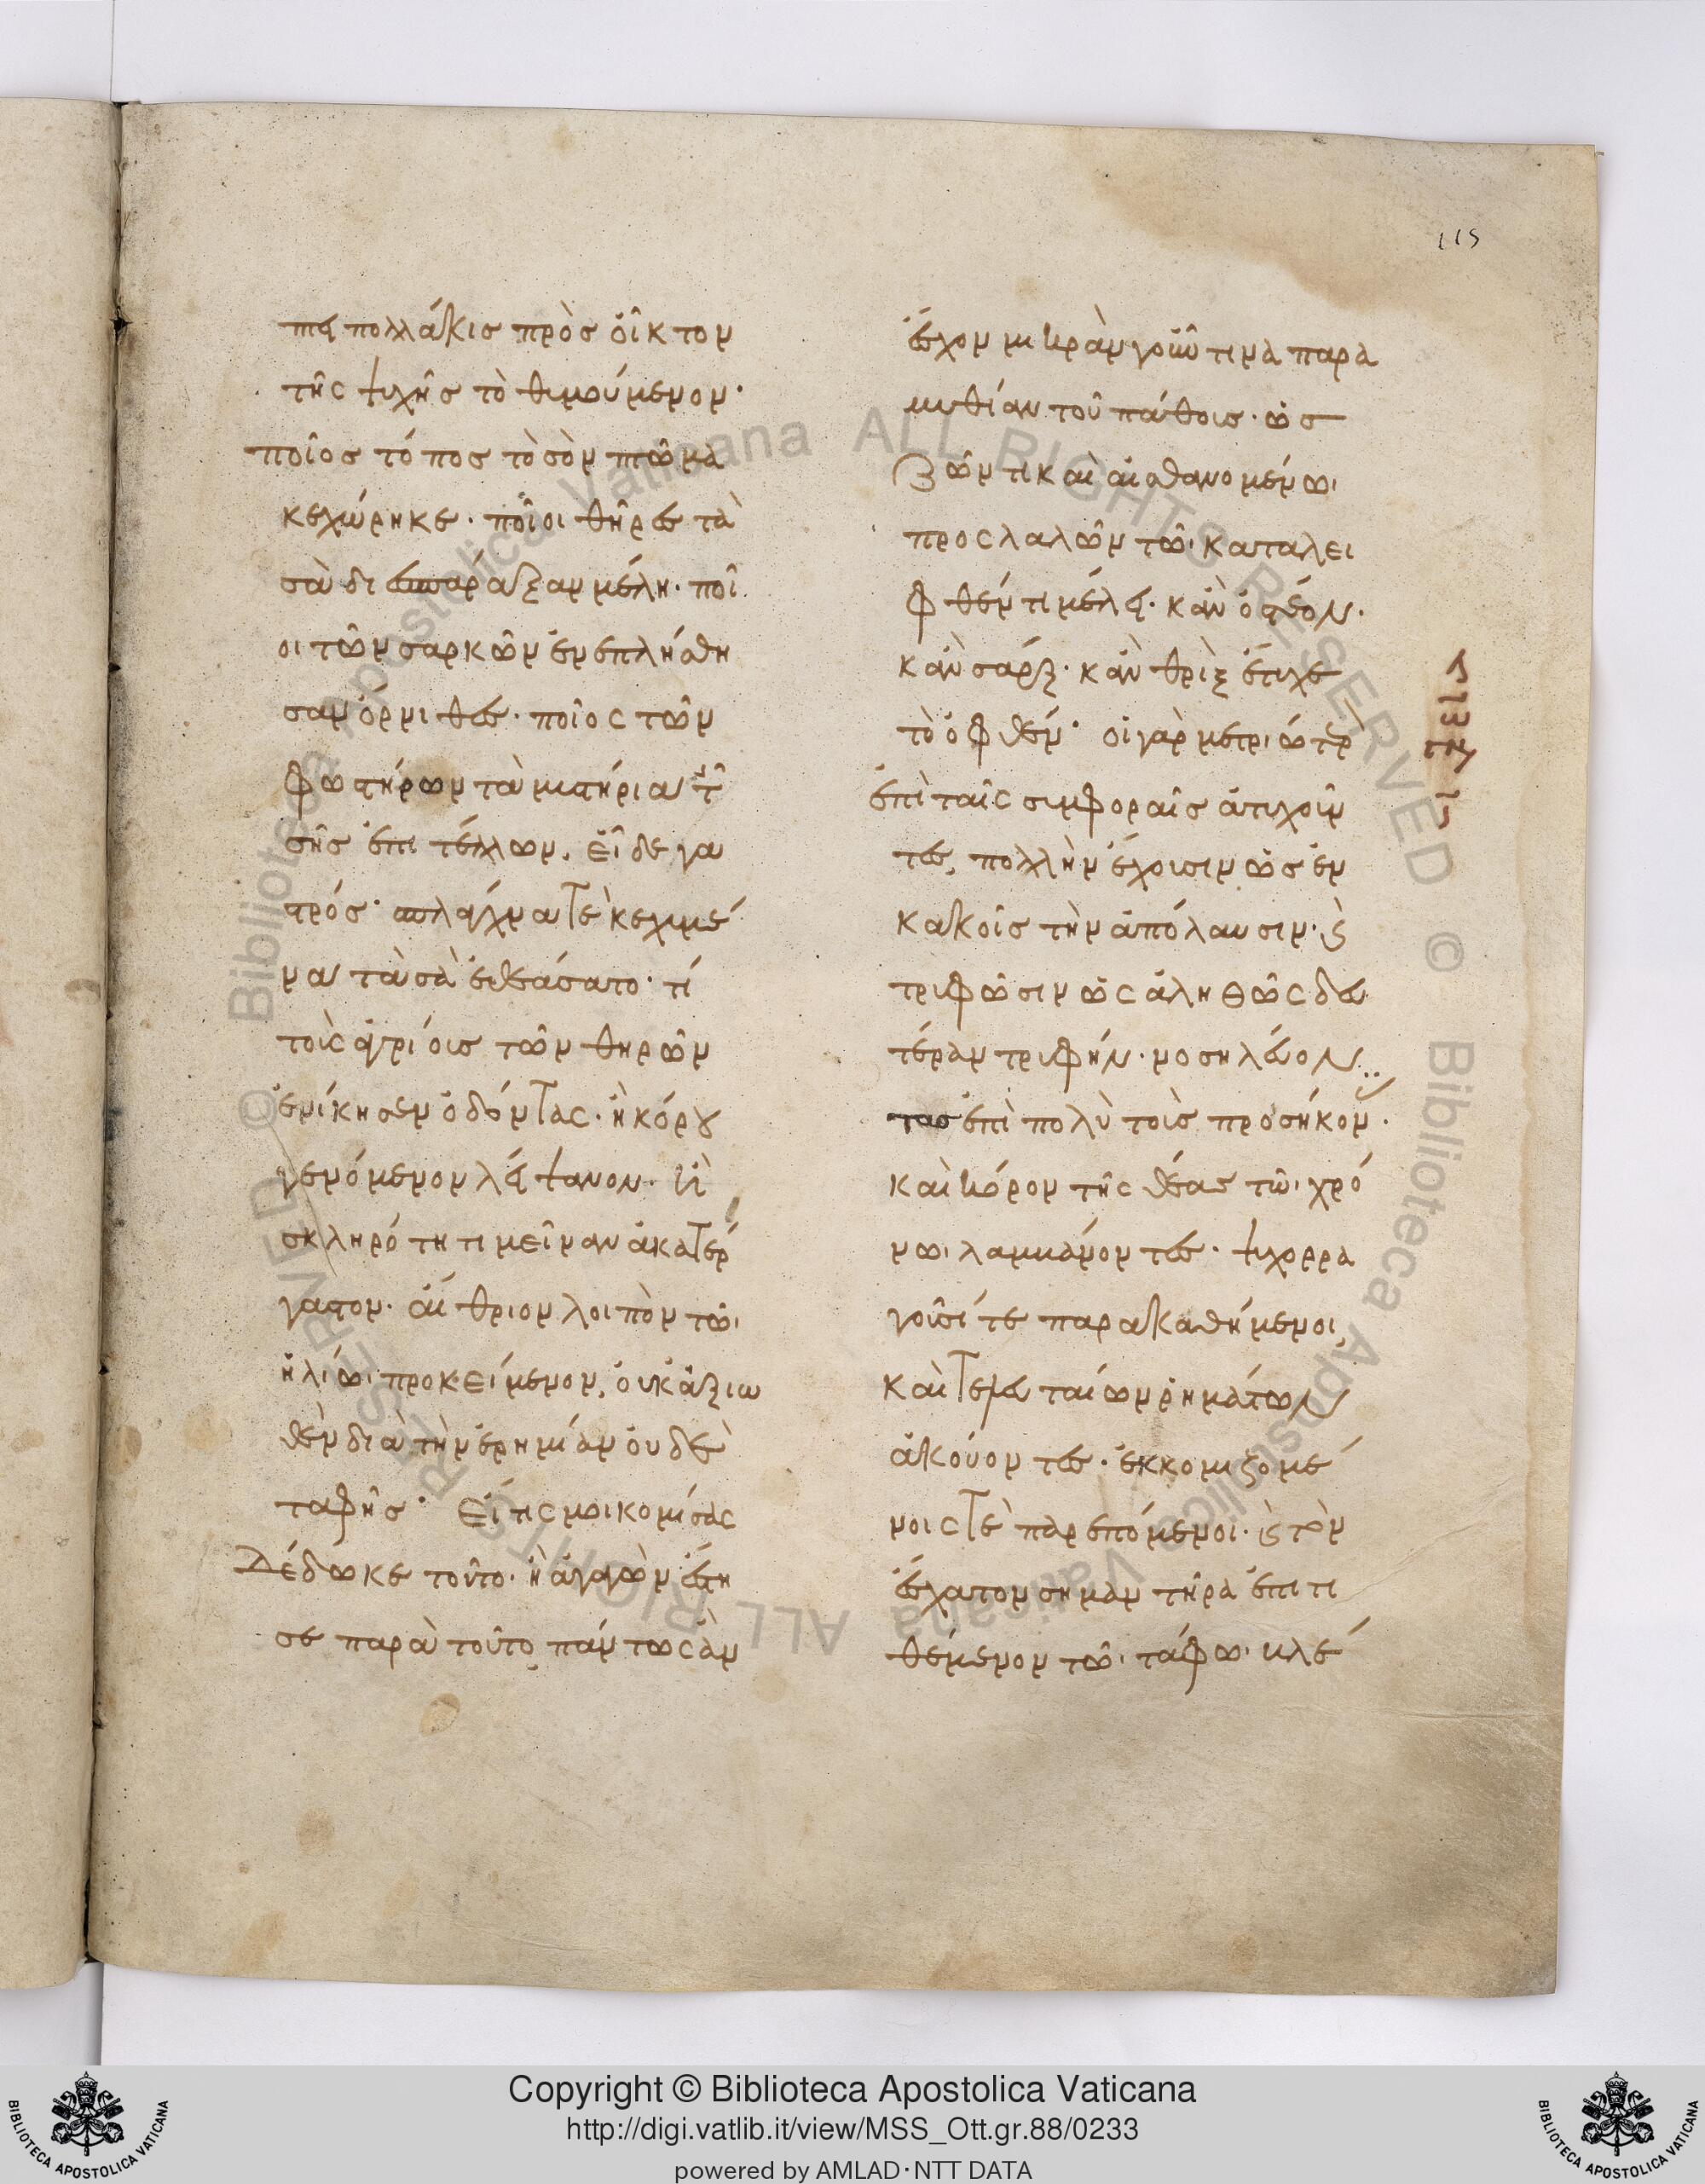 115
πτει πολλάκισ πρὸσ οἶκτον
τῆς ψυχῆσ τὸ θυμούμενον·
ποῖοσ τόποσ τὸ σὸν πτῶμα
κεχώρηκε· ποῖοι θῆρεσ τὰ
σὰ διεσπάραξαν μέλη· ποῖ
οι τῶν σαρκῶν ἐνεπλήσθη
σαν ὄρνιθεσ· ποῖος τῶν
φωστήρων τὰ μυστήρια τ
σῆσ ἐπιτέλλων, εἶδε γα
στρόσ· σπλάγχνα τὲ κεχυμέ
να τὰ σὰ ἐθεάσατο· τί
τοὺς ἀγρίουσ τῶν θηρῶν
ἐνίκησεν ὀδόντας· ἢ κόρου
γενόμενον λείψανον· ἢ
σκληρότητι μεῖναν ἀκατέρ
γαστον· αἴθριον λοιπὸν τῶι
ἡλίωι προκείμενον, οὐκ ἀξιω
θὲν διὰ τὴν ἐρημίαν οὐδὲ
ταφῆσ· Εἴ τις μοι κομίσας
δέδωκε τοῦτο· ἢ ἀγαγὼν ἔστη
σε παρὰ τοῦτο, πάντως ἂν
ἔσχον μικρὰν γοῦν τινὰ παρα
μυθίαν τοῦ πάθουσ· ὡσ
ζῶντι καὶ αἰσθανομένωι
προςλαλῶν τῶι καταλει
φθέντι μέλει· κἂν ὀστέον·
κἂν σαρξ· κἂν θρὶξ ἔτυχε
τὸ ὀφθέν· οἱ γὰρ μετριώτερ
ἐπὶ ταῖς συμφοραῖσ ἀτυχοῦν
τεσ, πολλὴν ἔχουσιν ὡσ ἐν
κακοῖσ τὴν ἀπόλαυσιν· καὶ
τρυφῶσιν ὡς ἀληθῶς δευ
τέραν τρυφήν· νοσηλεύον
τασ ἐπὶ πολὺ τοὺσ προσήκον·
καὶ κόρον τῆς θέασ τῶι χρό
νωι λαμβάνοντεσ· ψυχορρα
γοῦσί τε παρακαθήμενοι,
καὶ τελευταίων ῥημάτων
ἀκούοντεσ· ἐκκομιζομέ
νοις τὲ παρεπόμενοι· καὶ τὸν
ἔσχατον σημαντῆρα ἐπιτι
θέμενον τῶι τάφωι κλέ